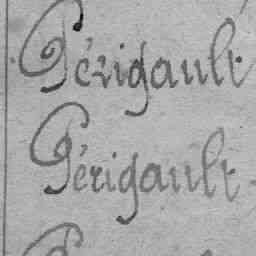 Périgault.
Périgault.